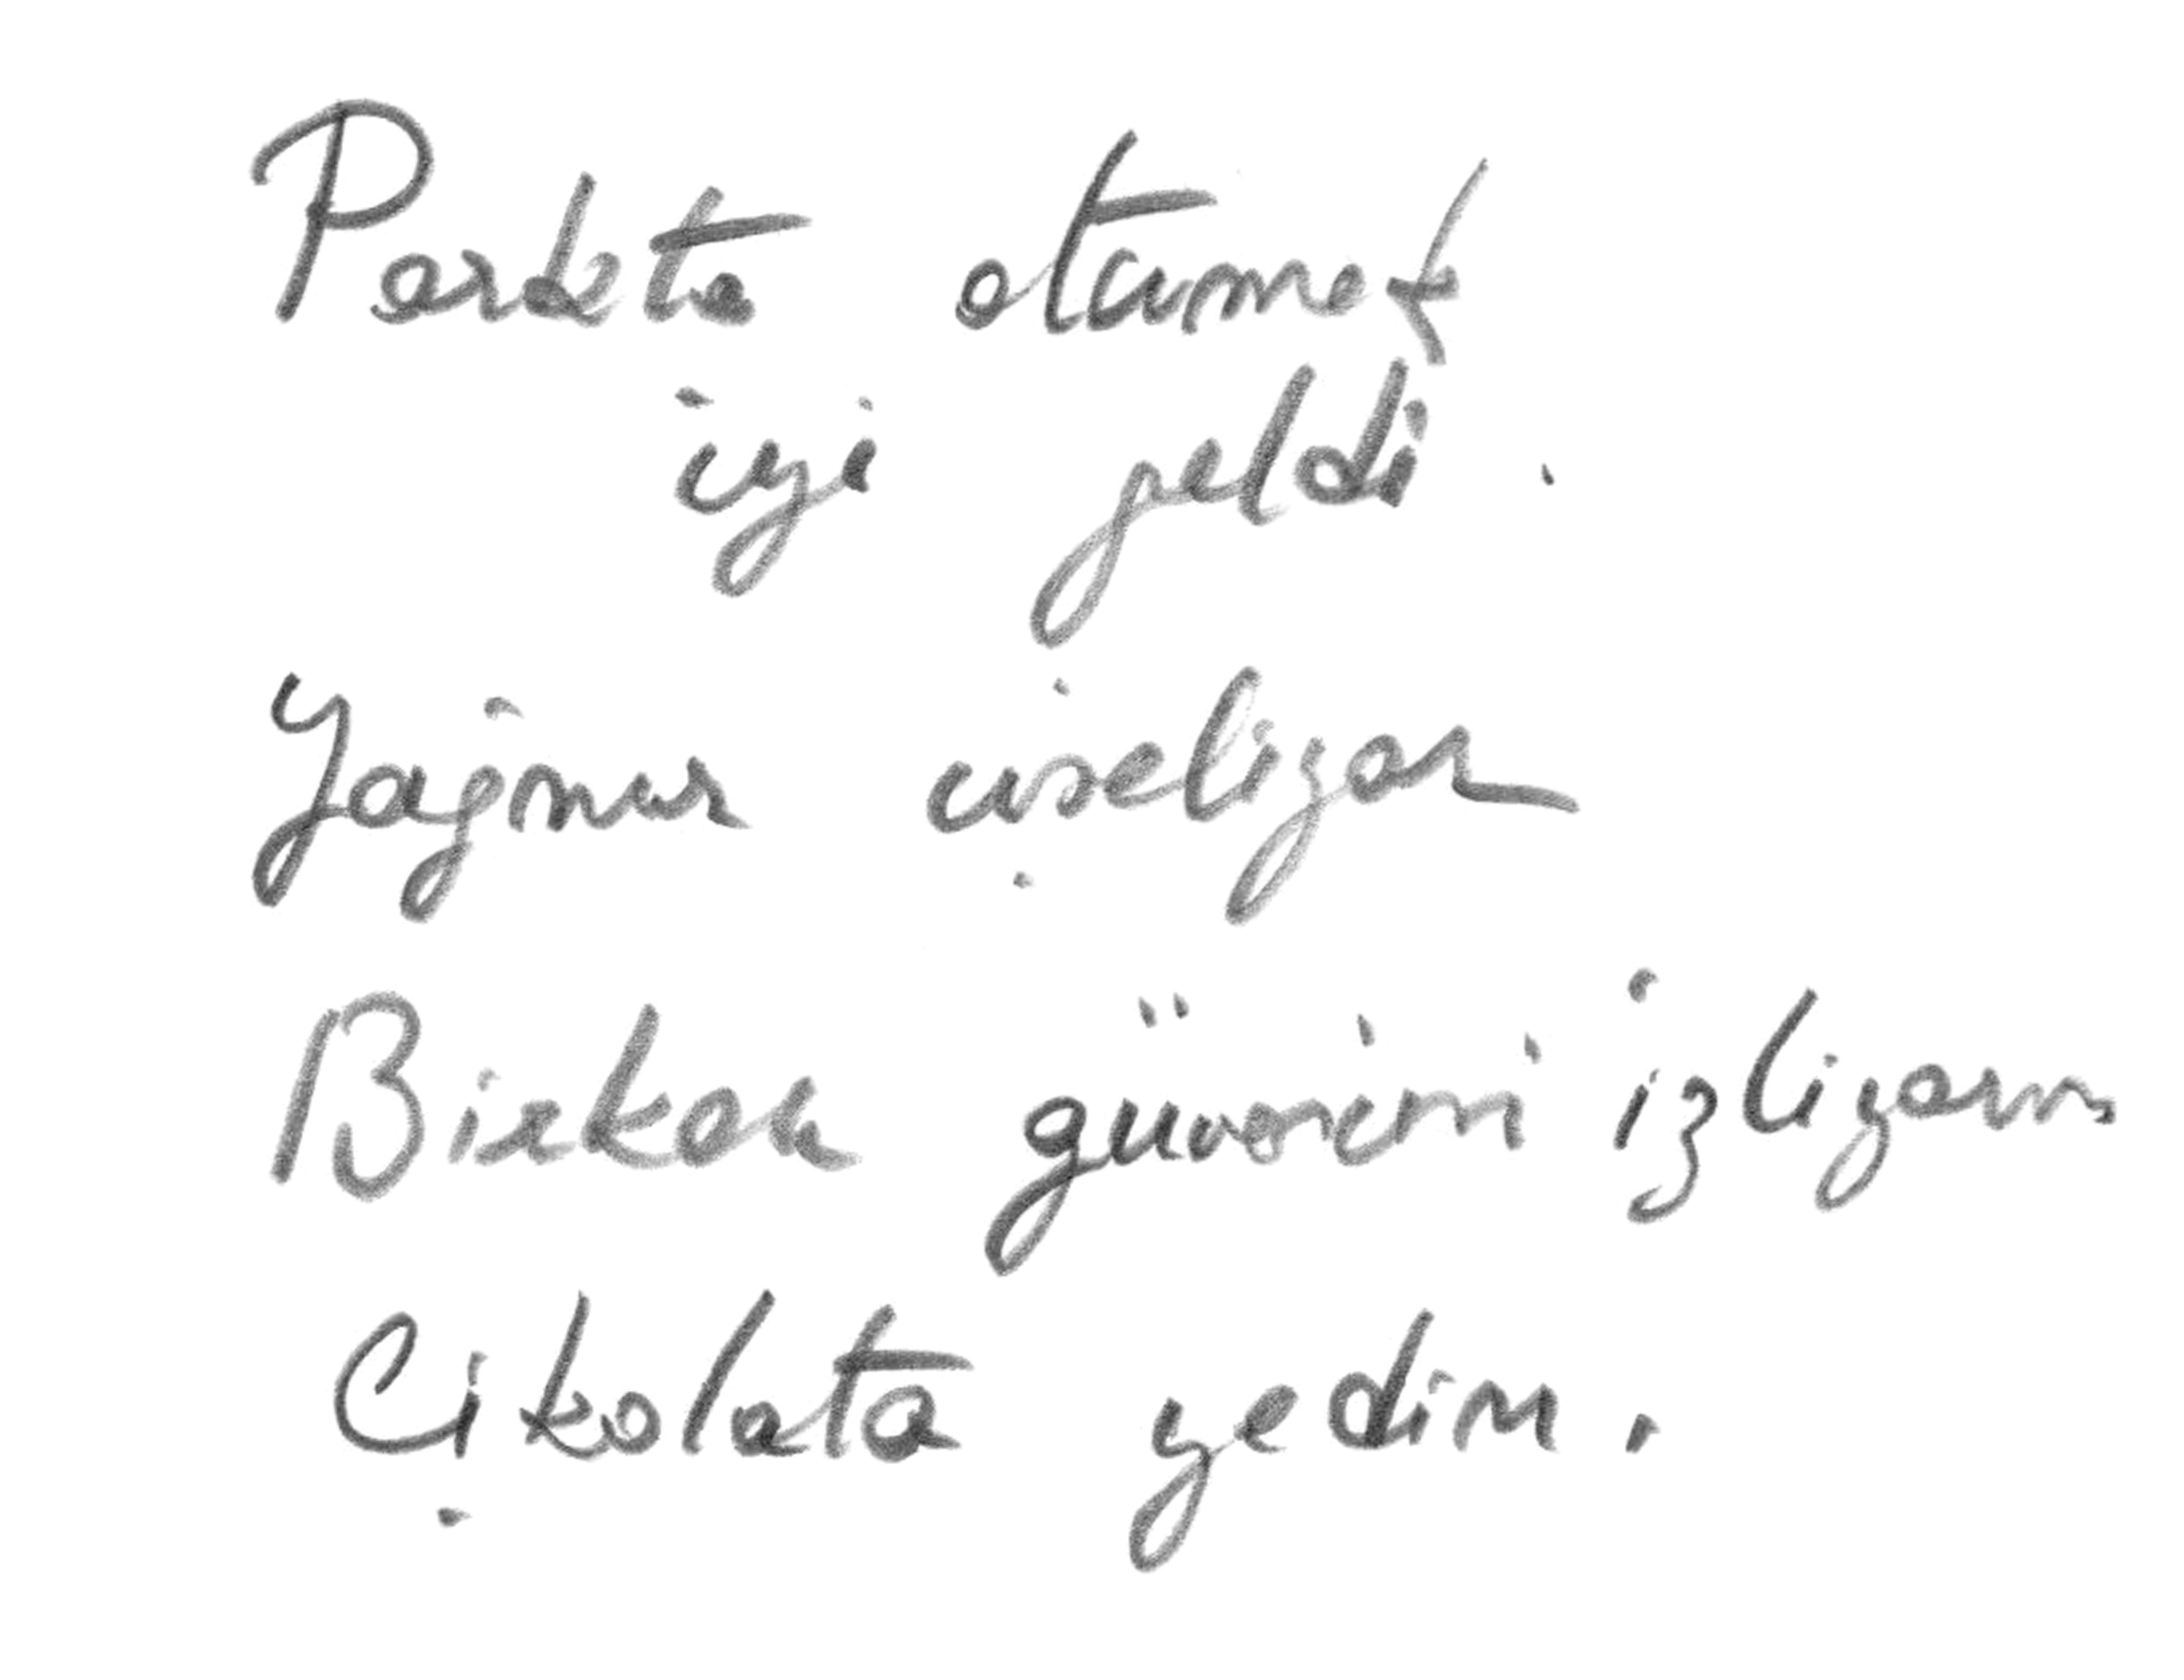 Parkta oturmak
iyi geldi.
Yağmur çiseliyor
Birkaç güvercin izliyorum
Çikolata yedim.